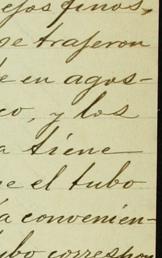 ejos finos,
se trajeron
de en agos-
co, y los
a tiene
ue el tubo
ía convenien-
tubo correspon